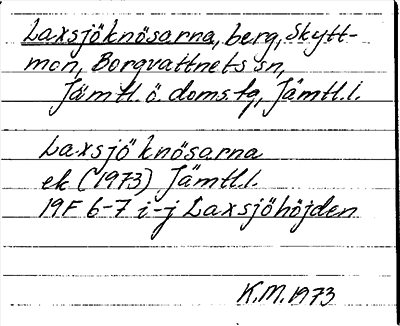 Laxsjöknösarna, berg, Skytt-
mon, Borgvattnets sn,
Jämtl. ö. doms. tg, Jämtl. l.
Laxsjöknösarna
ek (1973) Jämtl. l.
19F 6-7 i-j Laxsjöhöjden
K.M. 1973